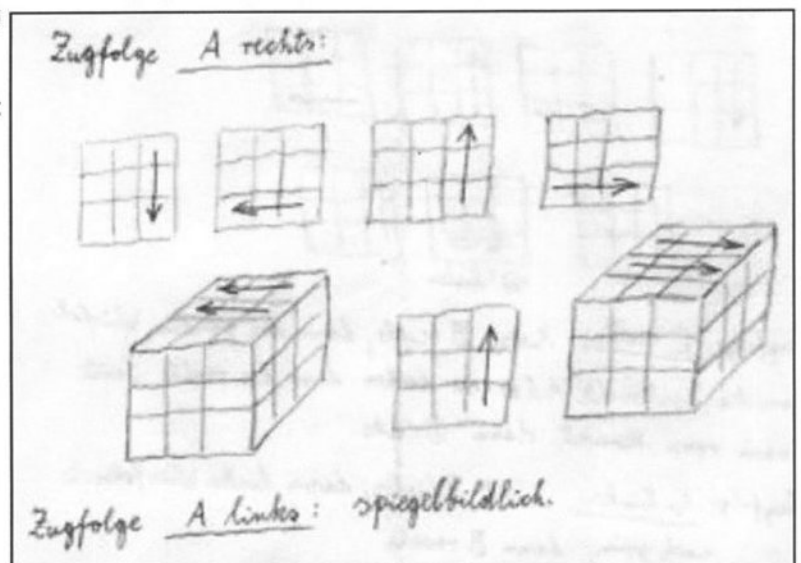 Zugfolge A rechts:
Zugfolge A links: spiegelbildlich.